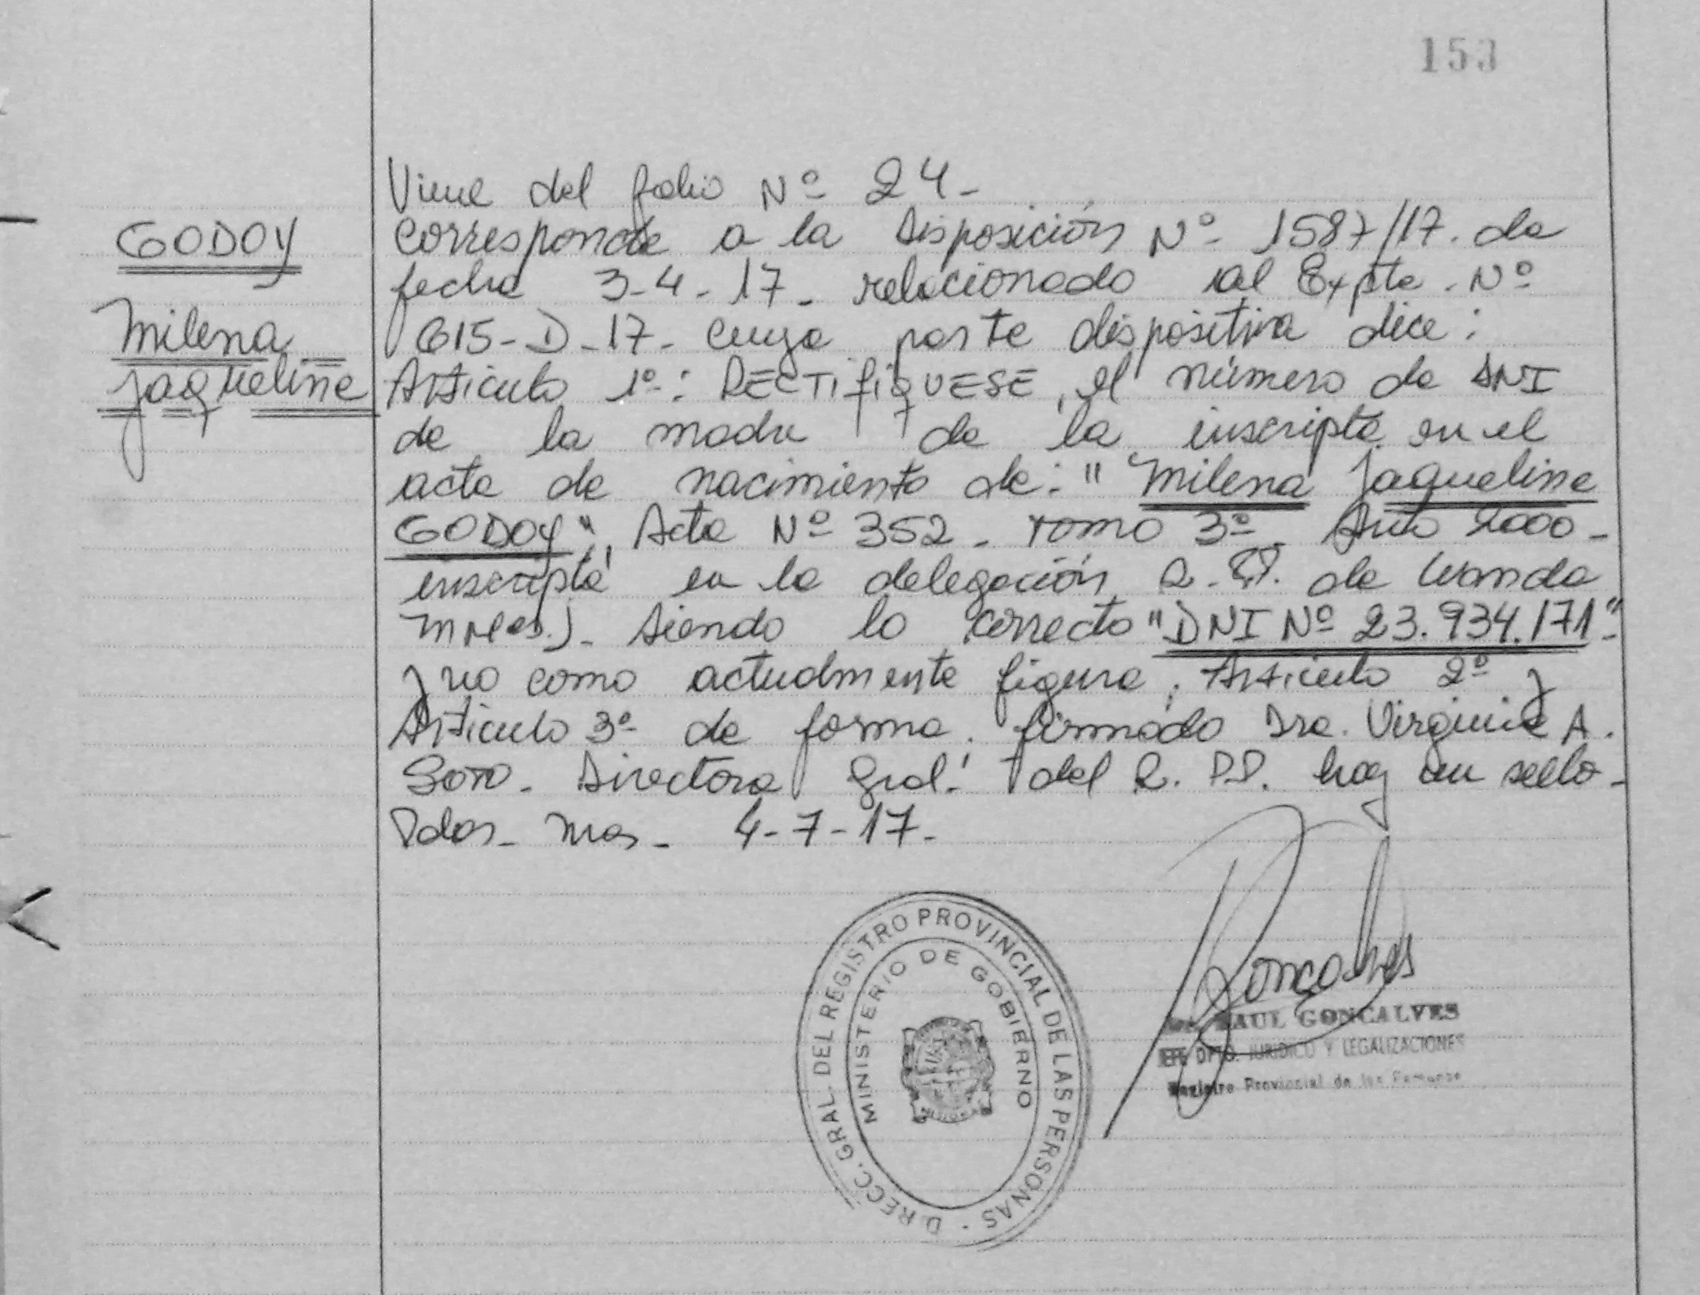 153
Viene del folio Nº 24-
GODOY
corresponde a la Disposición Nº 1587/17. de
fecha 3-4-17- relacionado al Expte. Nº
Milena
615-D-17- cuya parte dispositiva dice:
Jaqueline
Articulo 1º: RECTIFIQUESE, el número de DNI
de la madre de la inscripta en el
acta de nacimiento de: "Milena Jaqueline
GODOY", Acta Nº 352- Tomo 3º- Año 2000-
inscripta en la delegación R.PP. de Wanda
Mnes.)- siendo lo correcto "DNI Nº 23.934.171"-
y no como actualmente figura; Articulo 2º y
Articulo 3º de forma. firmado Dra. Virginia A.
Soto. Directora Gral. del R.PP. hay un sello-
Pdas- Mns- 4-7-17-
DIRECC. GRAL. DEL REGISTRO PROVINCIAL DE LAS PERSONAS
MINISTERIO DE GOBIERNO
MISIONES
Goncalves
RAUL GONCALVES
JEFE DPTO. JURIDICO Y LEGALIZACIONES
Registro Provincial de las Personas